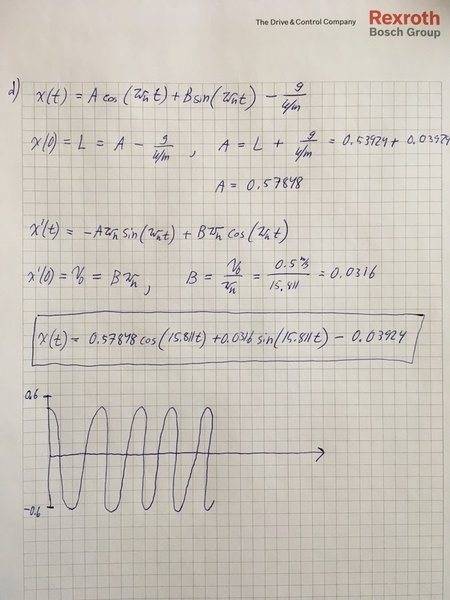 The Drive & Control Company Rexroth
Bosch Group
d) x(t) = A cos(ωₙt) + B sin(ωₙt) − g/(k/m)
x(0) = L = A − g/(k/m) , A = L + g/(k/m) = 0.53924 + 0.03924
A = 0.57848
x'(t) = −Aωₙ sin(ωₙt) + Bωₙ cos(ωₙt)
x'(0) = V₀ = Bωₙ , B = V₀/ωₙ = 0.5 m/s / 15.811 = 0.0316
x(t) = 0.57848 cos(15.811t) + 0.0316 sin(15.811t) − 0.03924
0.6
-0.6